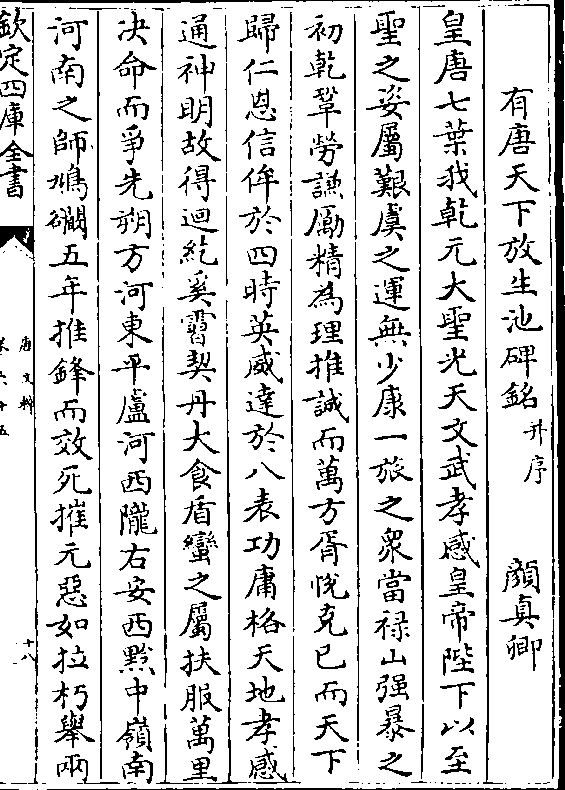 有唐天下放生池碑銘并序　顔真卿
皇唐七葉我乾元大聖光天文武孝感皇帝陛下以至
聖之姿屬艱虞之運無少康一旅之衆當祿山强暴之
初乾鞏勞謙厲精為理推誠而萬方胥恱克已而天下
歸仁恩信侔於四時英威達於八表功庸格天地孝感
通神明故得迴紇奚霫契丹大食盾蠻之屬扶服萬里
决命而爭先朔方河東平盧河西隴右安西黔中嶺南
河南之師虓闞五年推鋒而效死摧元惡如拉朽舉兩
欽定四庫全書
唐文粹
卷六十五
十八